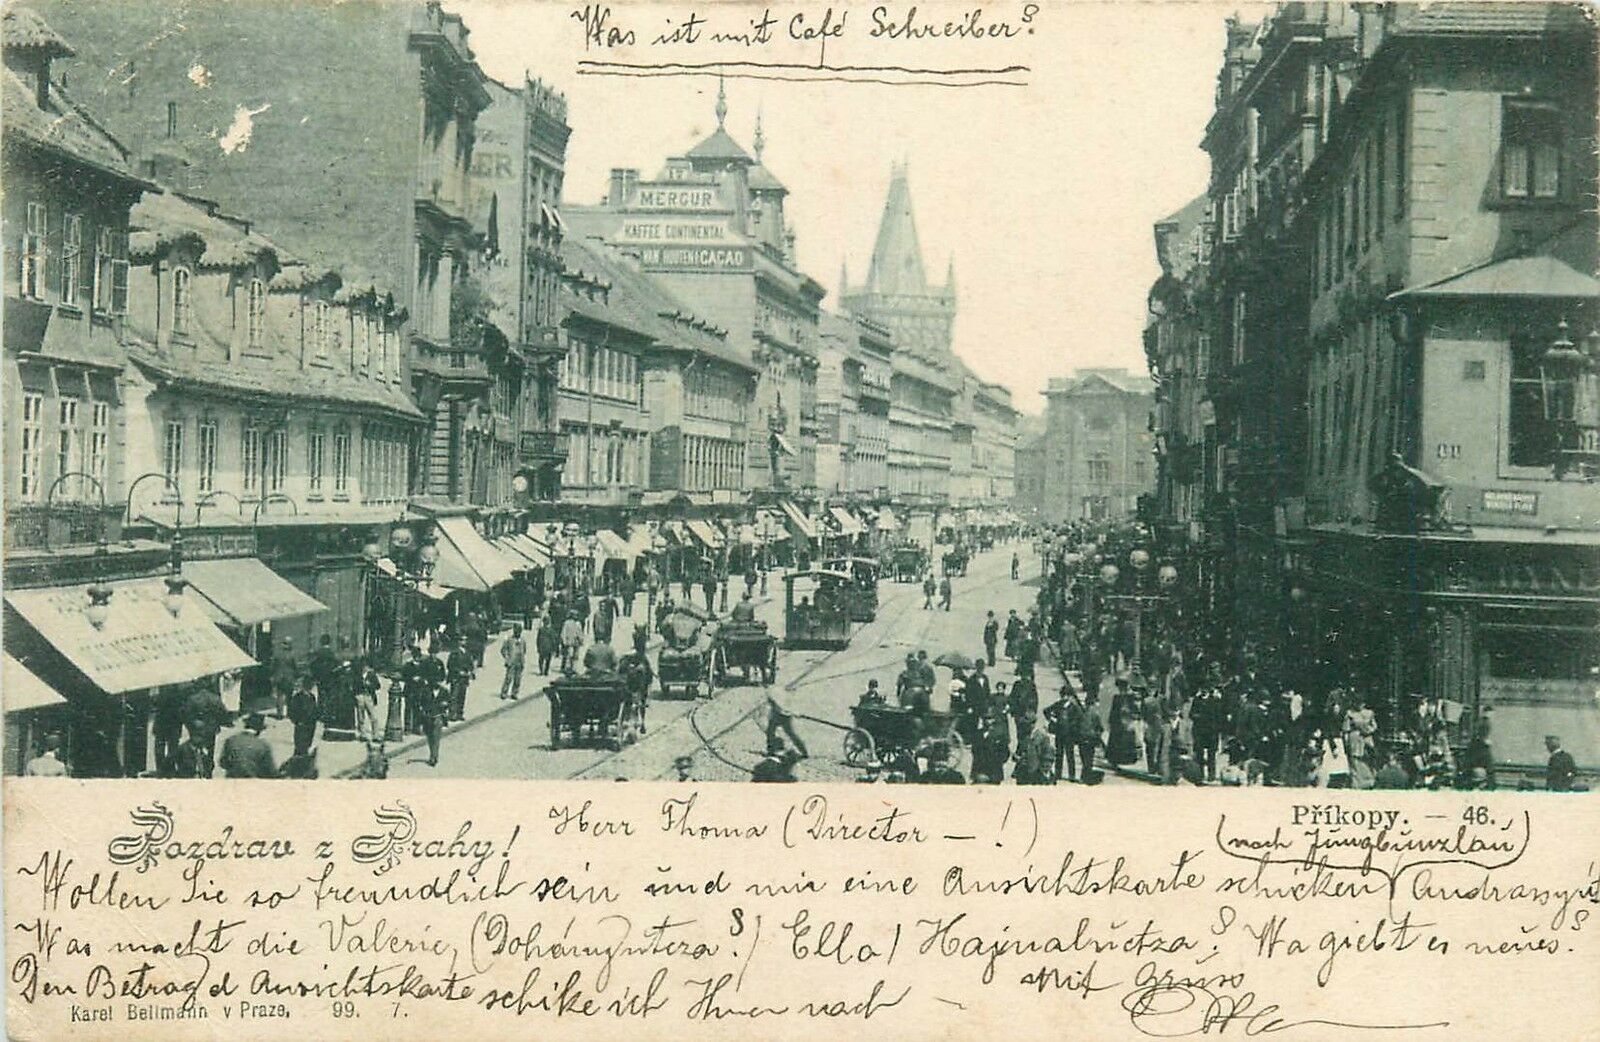 Was ist mit Café Schreiber?
MERCUR
KAFFEE CONTINENTAL
VAN HOUTEN CACAO
Příkopy. — 46.
Pozdrav z Prahy!
Herr Thoma (Director — !)
(nach Jungbunzlau)
Wollen Sie so freundlich sein und mir eine Ansichtskarte schicken (Andrassyút
Was macht die Valerie, (Dohányutcza?) Ella / Hajnalutcza? Wa giebt es neues?
Den Betrag d Ansichtskarte schike ich Ihnen nach — Mit Gruss
Karel Bellmann v Praze, 99. 7.